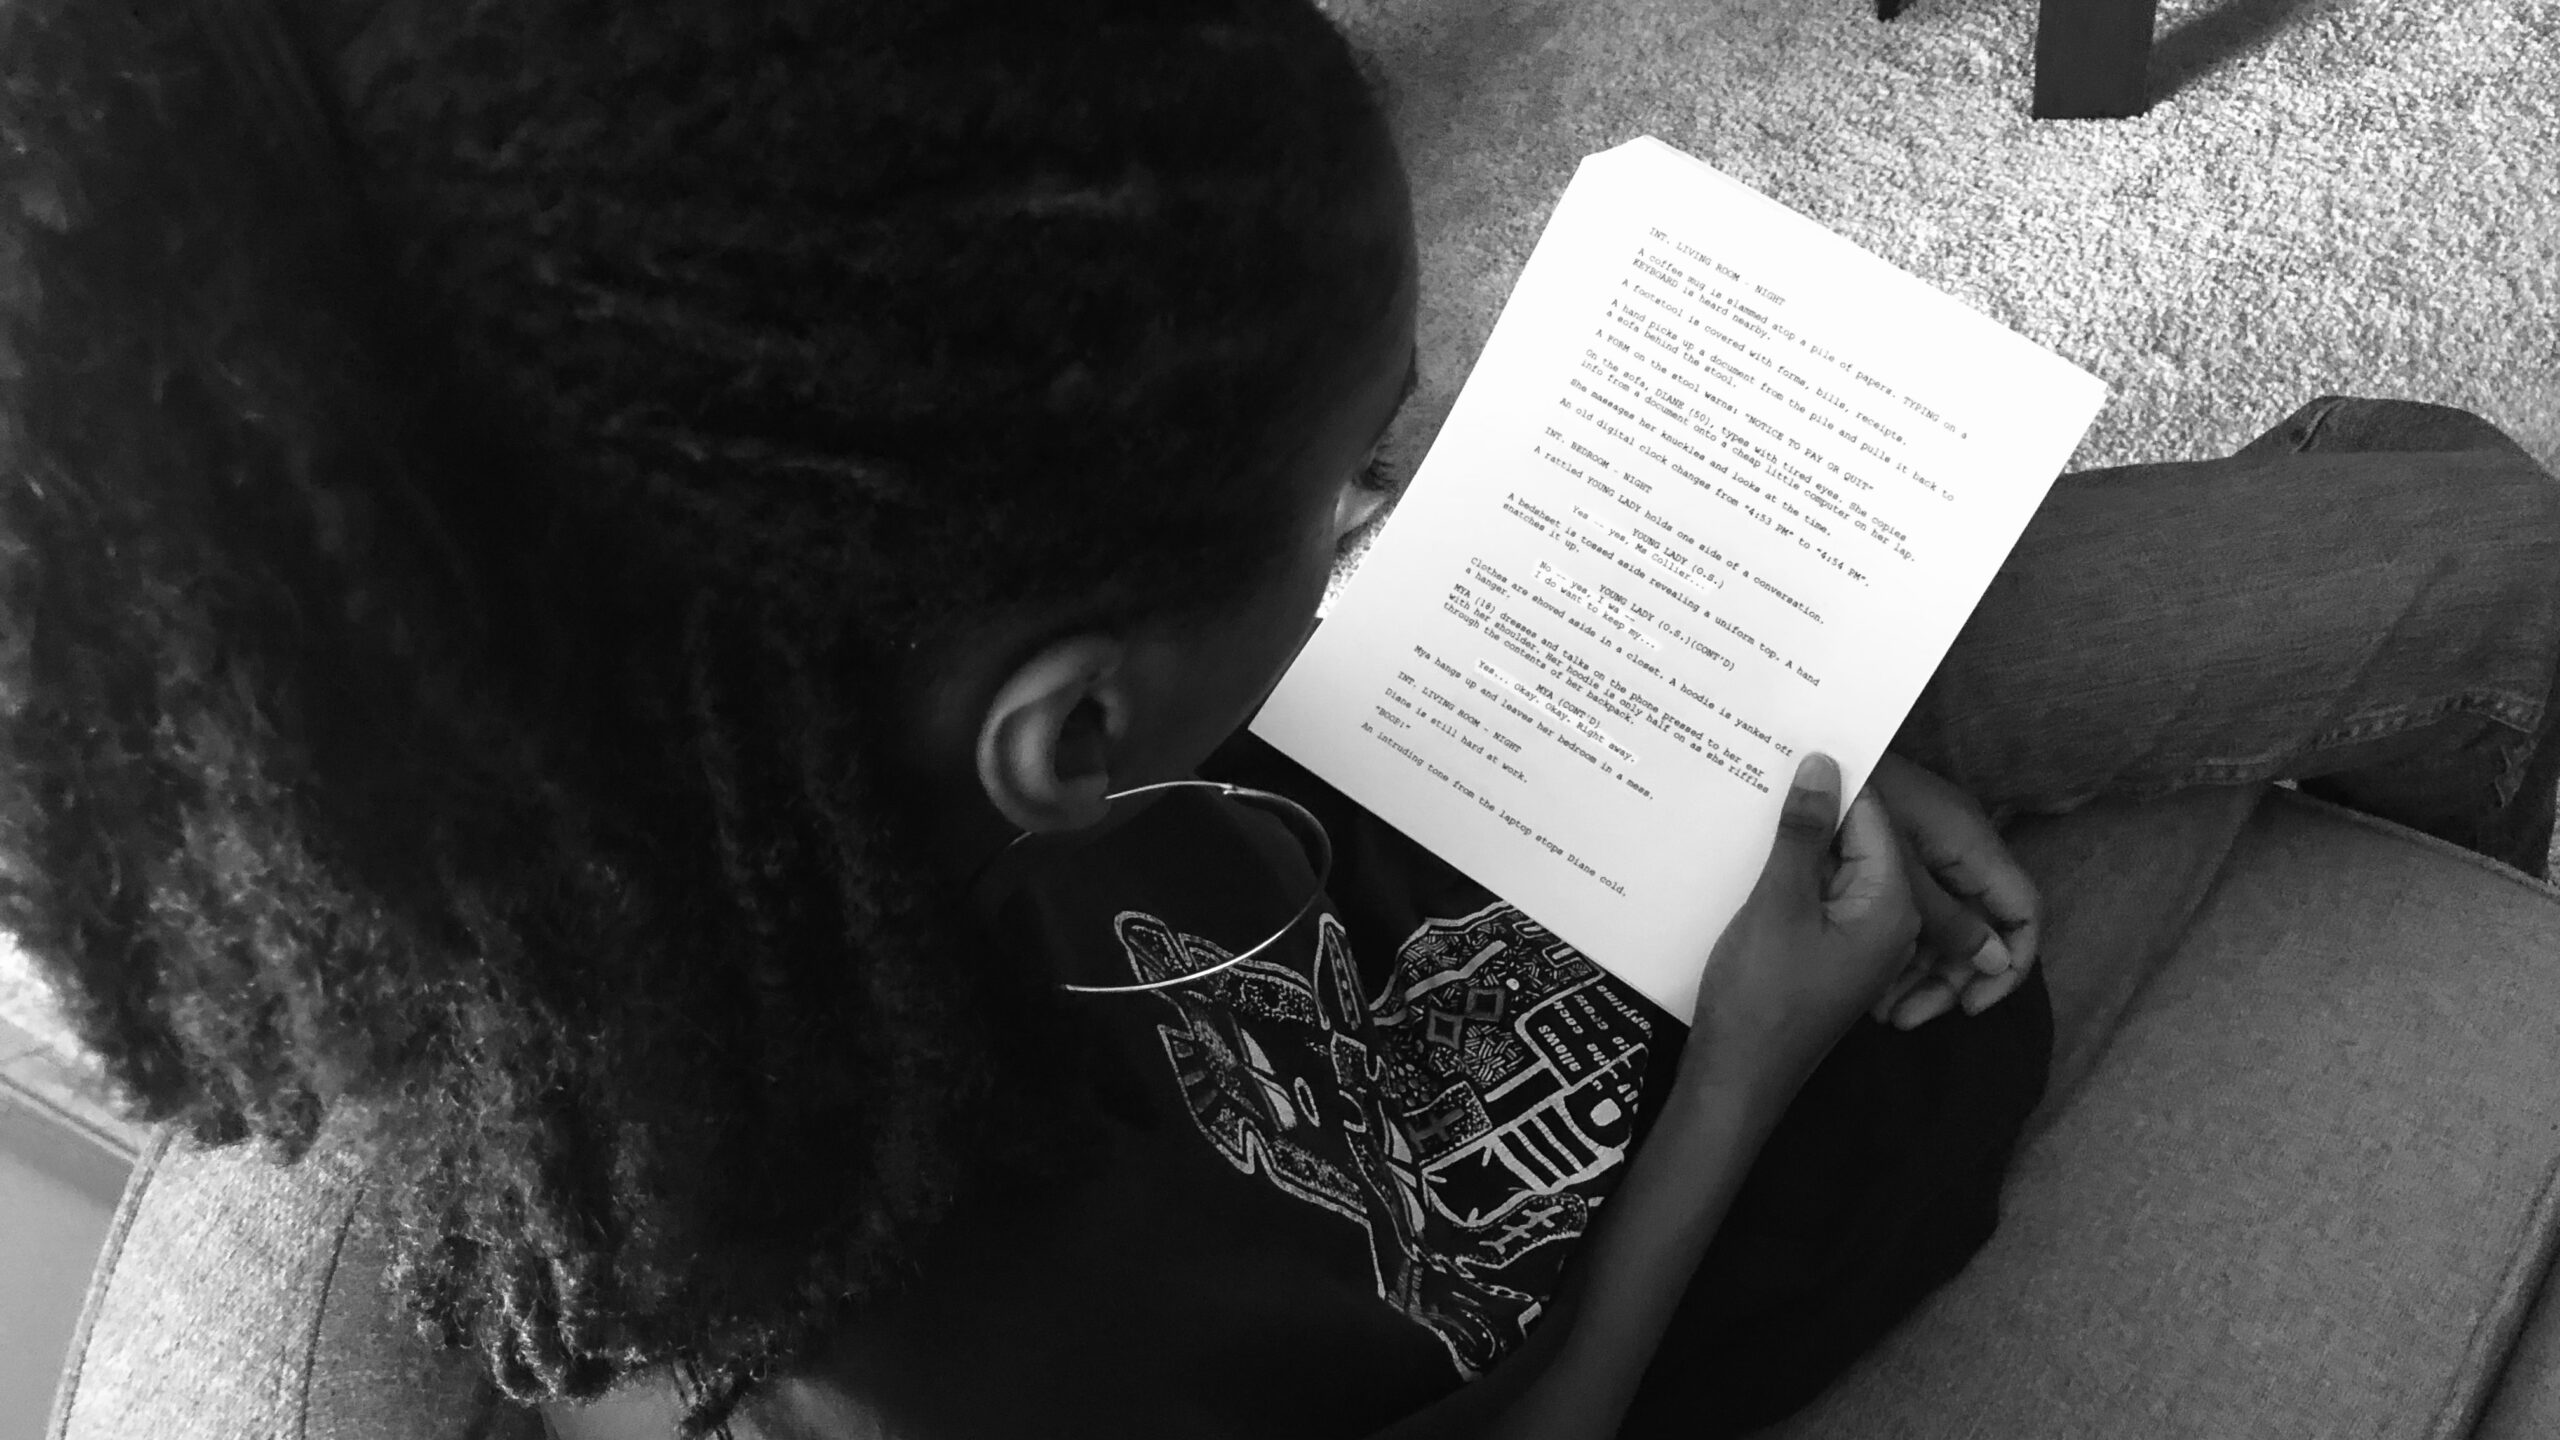 INT. LIVING ROOM - NIGHT
A coffee mug is slammed atop a pile of papers. TYPING on a
KEYBOARD is heard nearby.
A footstool is covered with forms, bills, receipts.
A hand picks up a document from the pile and pulls it back to
a sofa behind the stool.
A FORM on the stool warns: "NOTICE TO PAY OR QUIT"
On the sofa, DIANE (50), types with tired eyes. She copies
info from a document onto a cheap little computer on her lap.
She massages her knuckles and looks at the time.
An old digital clock changes from "4:53 PM" to "4:54 PM".
INT. BEDROOM - NIGHT
A rattled YOUNG LADY holds one side of a conversation.
YOUNG LADY (O.S.)
Yes -- yes, Ms Collier...
A bedsheet is tossed aside revealing a uniform top. A hand
snatches it up.
YOUNG LADY (O.S.)(CONT'D)
No -- yes, I wa --
I do want to keep my...
Clothes are shoved aside in a closet. A hoodie is yanked off
a hanger.
MYA (18) dresses and talks on the phone pressed to her ear
with her shoulder. Her hoodie is only half on as she riffles
through the contents of her backpack.
MYA (CONT'D)
Yes... Okay. Okay. Right away.
Mya hangs up and leaves her bedroom in a mess.
INT. LIVING ROOM - NIGHT
Diane is still hard at work.
"BOOP!"
An intruding tone from the laptop stops Diane cold.
allows
the
to